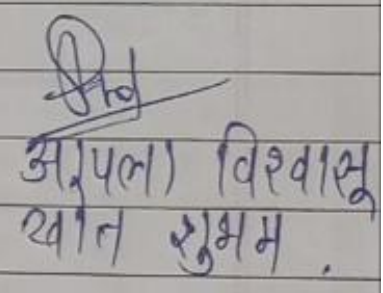 आपला विश्वासू
खोत शुभम.